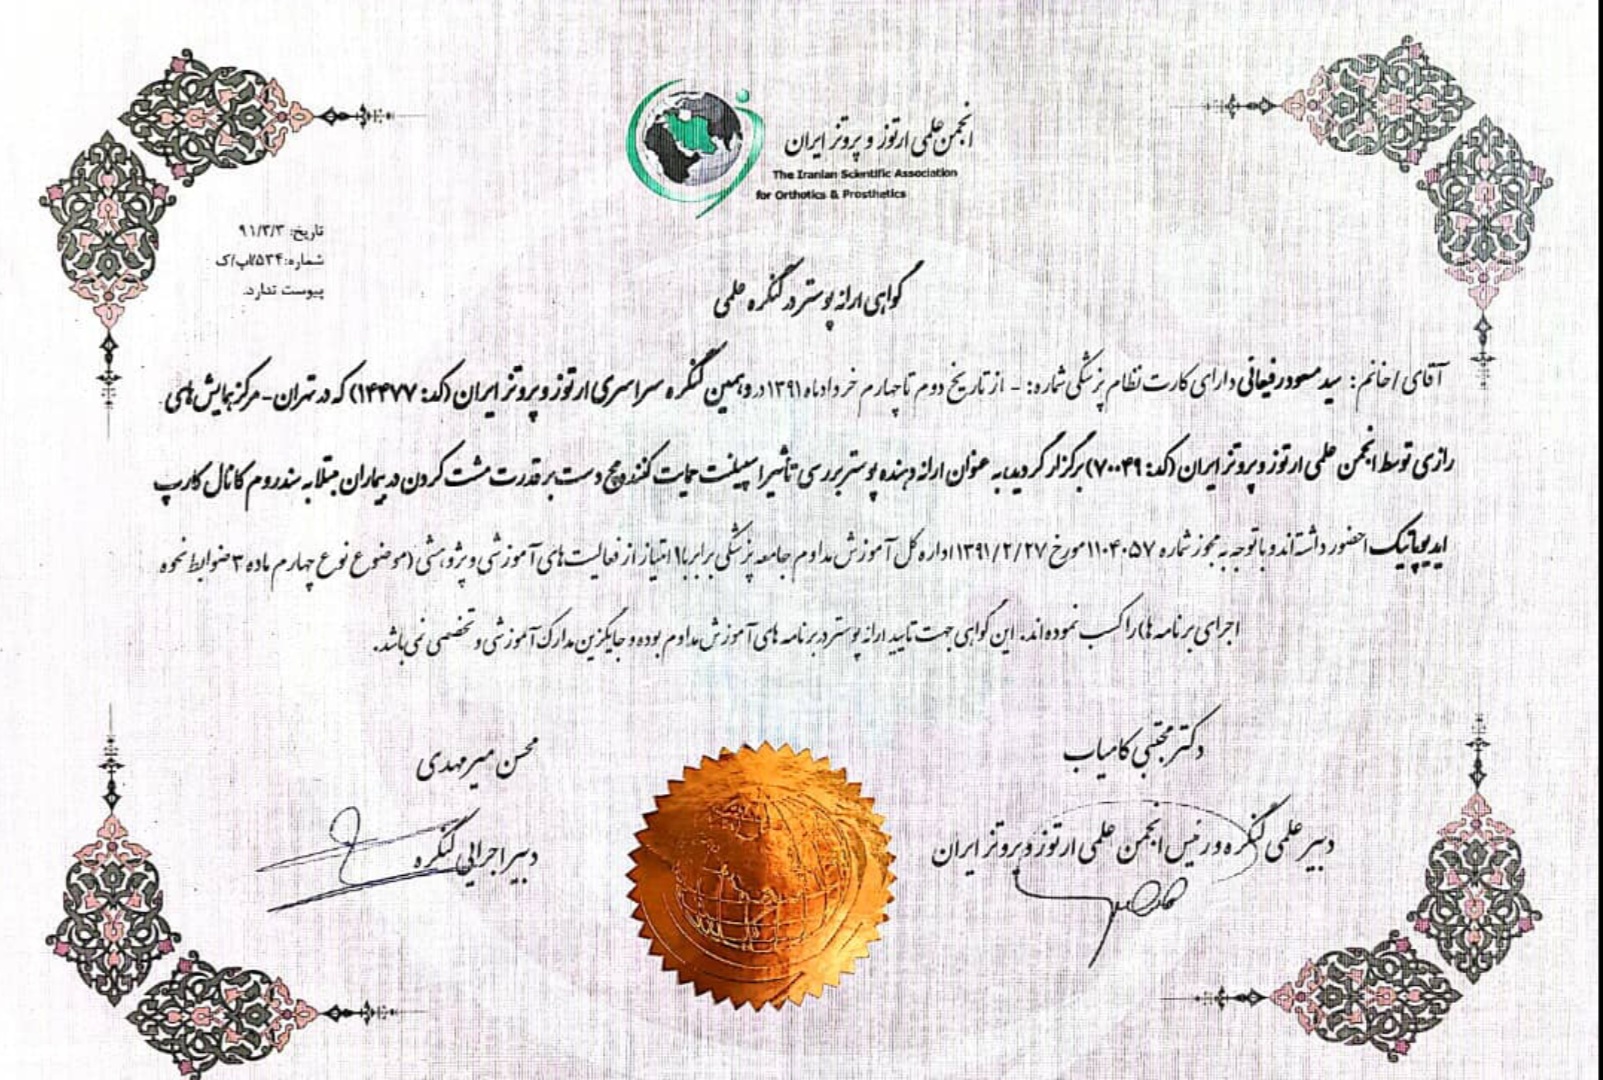 انجمن علمی ارتوز و پروتز ایران
The Iranian Scientific Association
for Orthotics & Prosthetics
تاریخ: ۹۱/۳/۳
شماره: ۵۳۴/اپ/ک
پیوست ندارد.
گواهی ارائه پوستر در کنگره علمی
آقای / خانم : سید مسعود رفیعائی دارای کارت نظام پزشکی شماره: - از تاریخ دوم تا چهارم خردادماه ۱۳۹۱ در دهمین کنگره سراسری ارتوز و پروتز ایران (کد: ۱۴۴۷۷) که در تهران - مرکز همایش های
رازی توسط انجمن علمی ارتوز و پروتز ایران (کد: ۷۰۰۴۹) برگزار گردید، به عنوان ارائه دهنده پوستر بررسی تأثیر اسپلینت حمایت کننده مچ دست بر قدرت مشت کردن در بیماران مبتلا به سندروم کانال کارپ
ایدیوپاتیک حضور داشته اند و با توجه به مجوز شماره ۱۱۰۴۰۵۷ مورخ ۱۳۹۱/۲/۲۷ اداره کل آموزش مداوم جامعه پزشکی برابر با ۱ امتیاز از فعالیت های آموزشی و پژوهشی (موضوع نوع چهارم ماده ۳ ضوابط نحوه
اجرای برنامه ها) را کسب نموده اند. این گواهی جهت تایید ارائه پوستر در برنامه های آموزش مداوم بوده و جایگزین مدارک آموزشی و تخصصی نمی باشد.
دکتر مجتبی کامیاب
دبیر علمی کنگره و رئیس انجمن علمی ارتوز و پروتز ایران
محسن میرمهدی
دبیر اجرایی کنگره